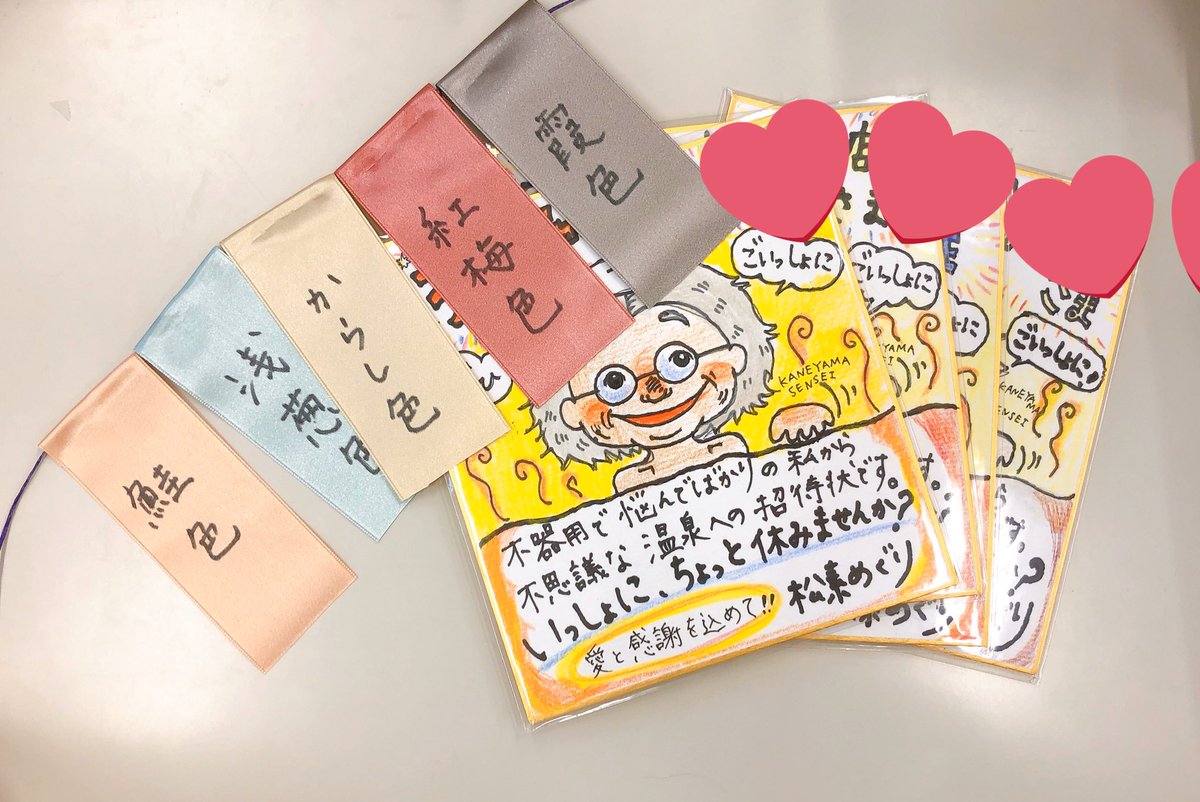 霞色
紅梅色
からし色
浅葱色
鮭色
ごいっしょに
KANEYAMA
SENSEI
不器用で悩んでばかりの私から
不思議な温泉への招待状です。
いっしょに、ちょっと休みませんか?
愛と感謝を込めて!!
松葉めぐり
ごいっしょに
KANEYAMA
SENSEI
いっしょに
ごいっしょに
KANEYAMA
SENSEI